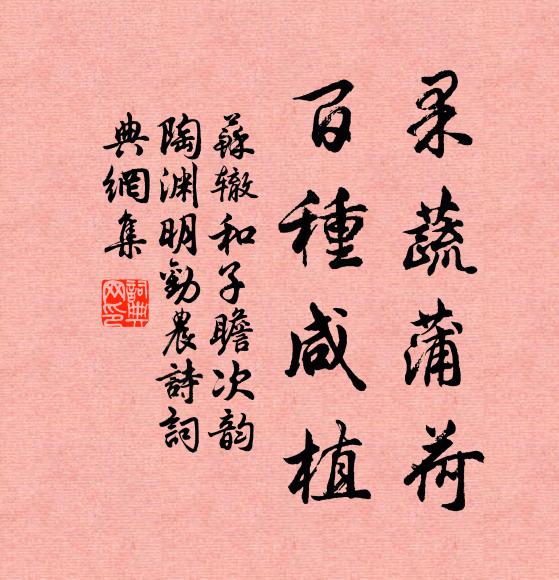 果蔬蒲荷
百種咸植
蘇辙和子瞻次韵
陶渊明勸農詩詞
典網集
詞典
网印